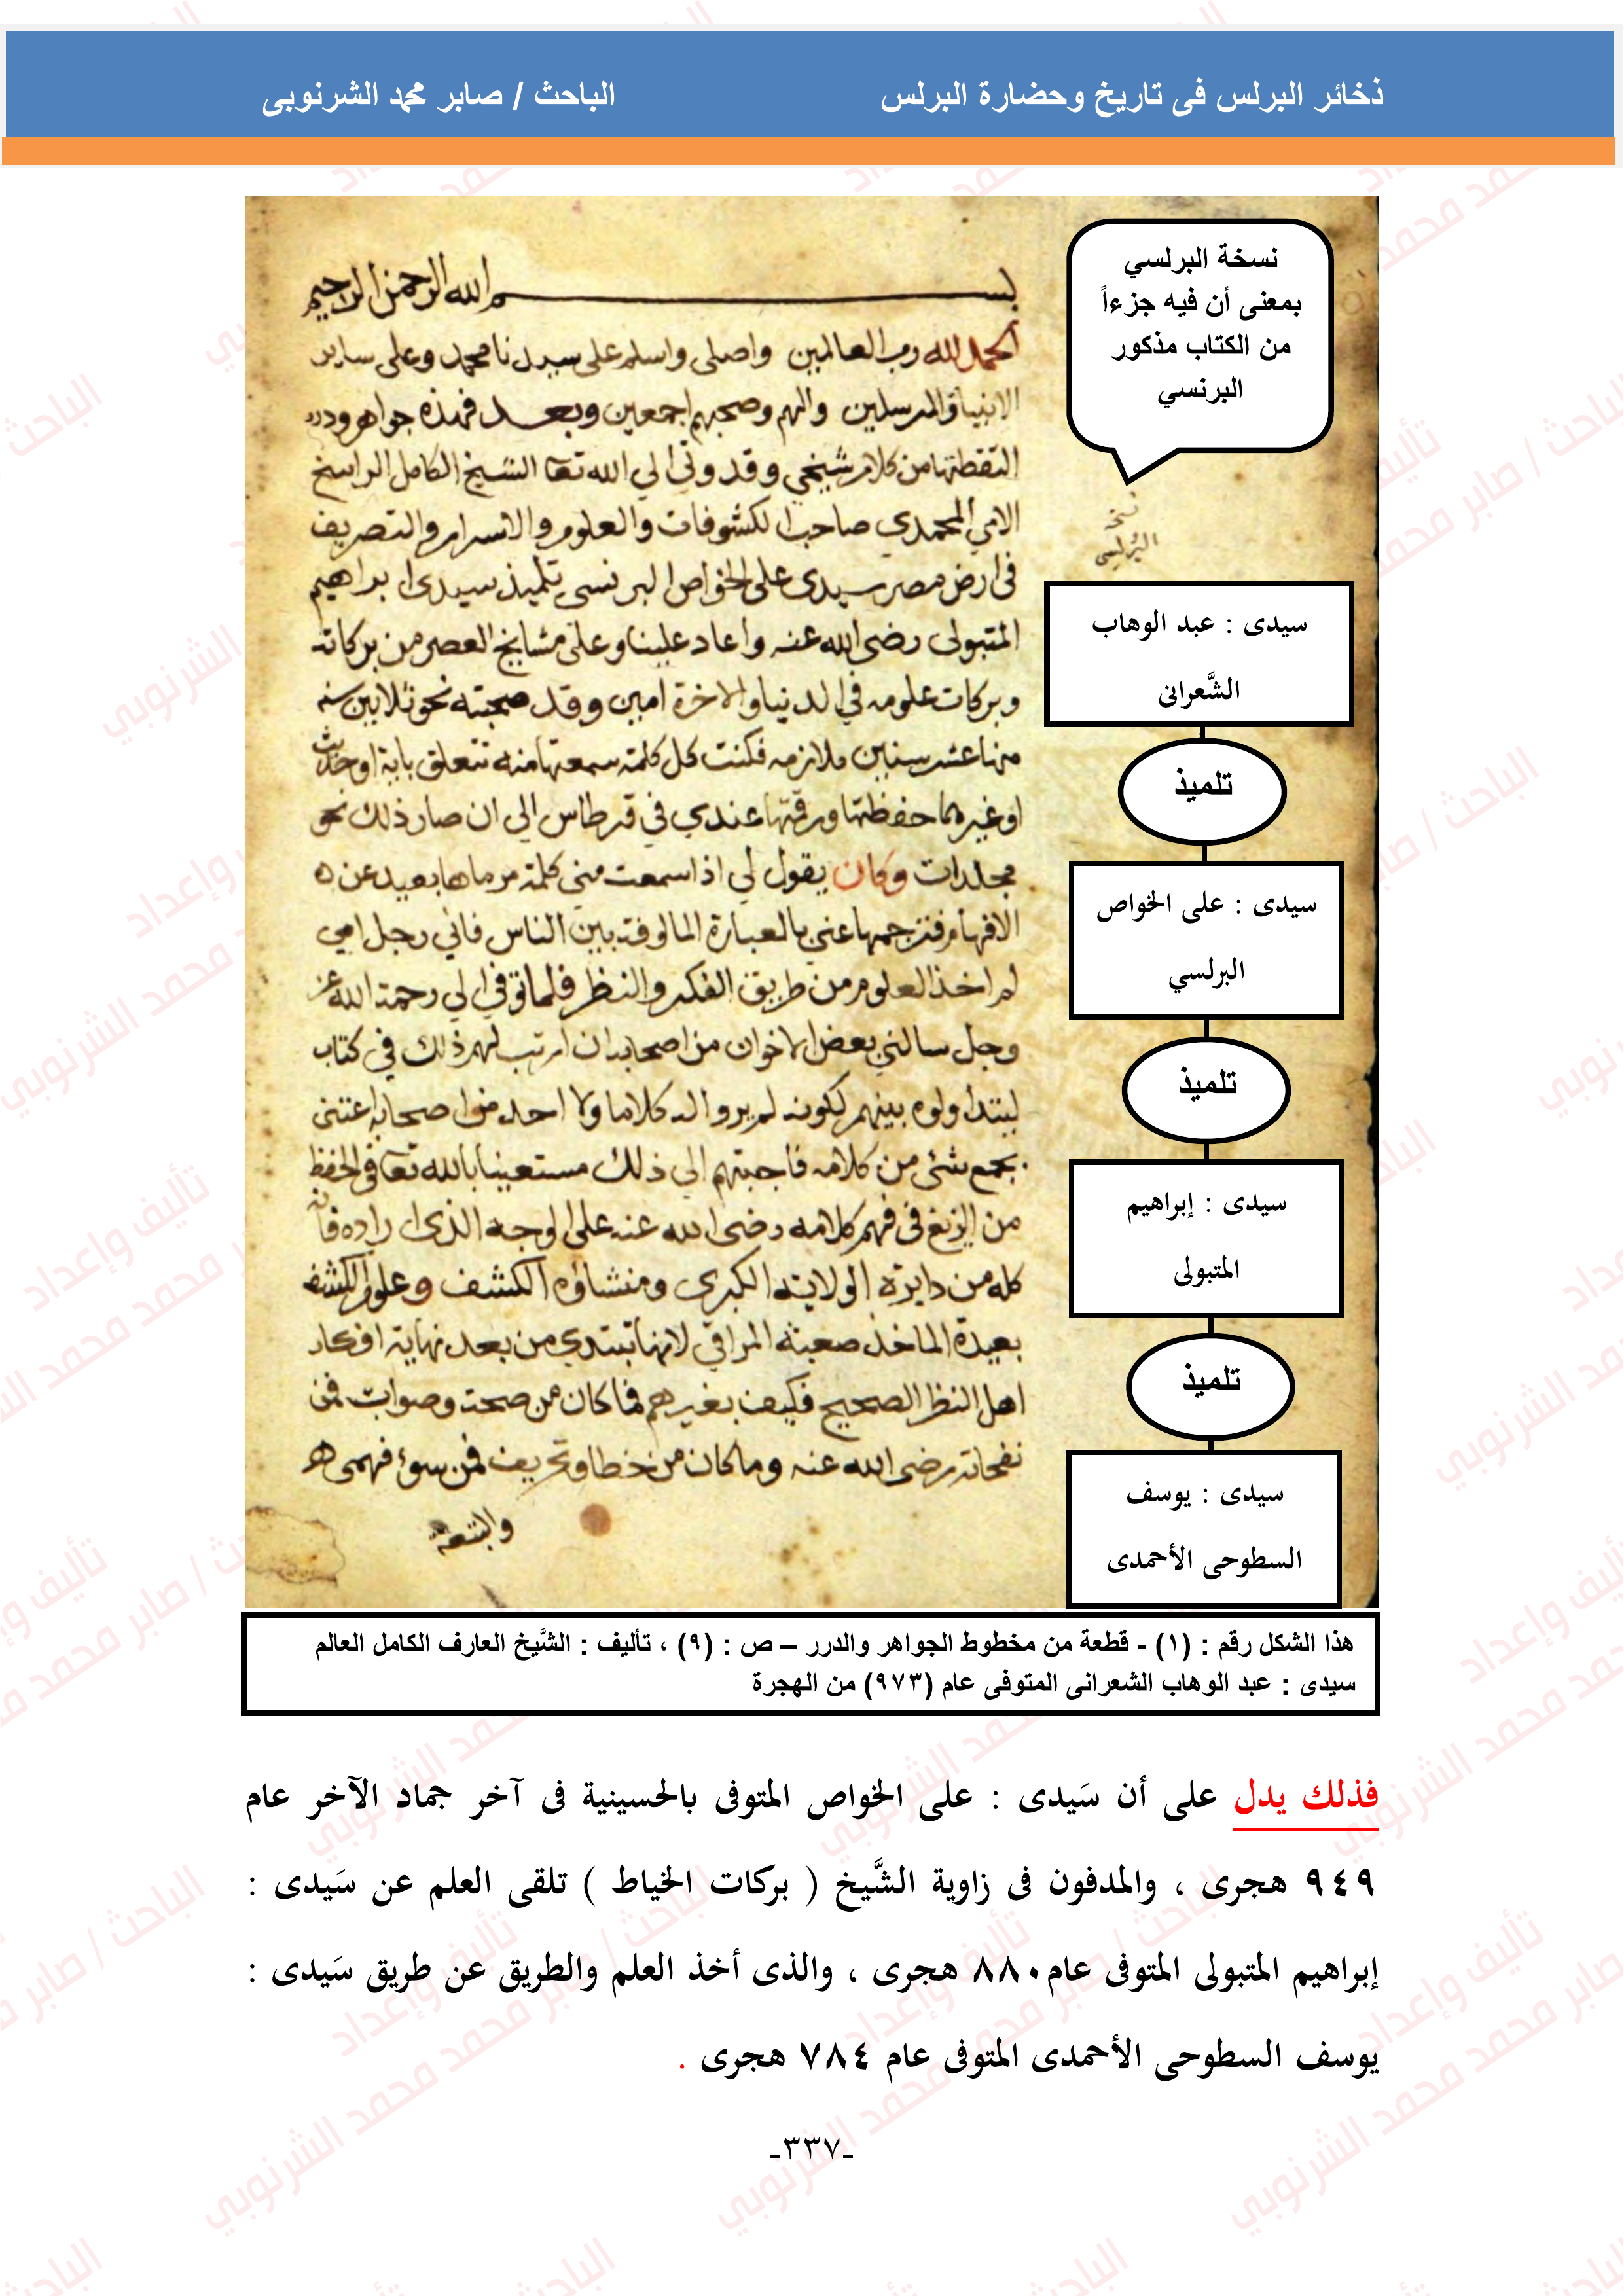 ذخائر البرلس فى تاريخ وحضارة البرلس
الباحث / صابر محمد الشرنوبى
نسخة البرلسي
بمعنى أن فيه جزءاً
من الكتاب مذكور
البرنسي
بسم الله الرحمن الرحيم
الحمد لله رب العالمين واصلى واسلم على سيدنا محمد وعلى ساير
الانبياء والمرسلين والهم وصحبهم اجمعين وبعد فهذه جواهر ودرر
التقطتها من كلام شيخي وقدوتي الي الله تعا الشيخ الكامل الراسخ
الامي المحمدي صاحب الكشوفات والعلوم والاسرار والتصريف
في ارض مصر سيدى على الخواص البرنسى تلميذ سيدى ابراهيم
المتبولى رضى الله عنه واعاد علينا وعلى مشايخ العصر من بركاته
وبركات علومه في الدنيا والاخرة امين وقد صحبته نحو ثلاثين سنه
منها عشر سنين ملازمه فكنت كل كلمة سمعتها منه تتعلق باية او حديث
او غيرهما حفظتها ورقمتها عندي في قرطاس الى ان صار ذلك نحو
مجلدات وكان يقول لي اذا سمعت مني كلمة مرماها بعيد عن
الافهام فترجمها عني بالعبارة المالوفة بين الناس فاني رجل امي
لم اخذ العلوم من طريق الفكر والنظر فلما توفي الي رحمة الله عز
وجل سالني بعض الاخوان من اصحابه ان ارتب لهم ذلك في كتاب
ليتداولوه بينهم لكونه لم يروا له كلاما ولا احد من اصحابه اعتنى
بجمع شئ من كلامه فاجبتهم الي ذلك مستعينا بالله تعا في الحفظ
من الزيغ فى فهم كلامه رضى الله عنه على الوجه الذى اراده فانه
كله من دايرة الولاية الكبرى ومنشاؤه الكشف وعلوم الكشف
بعيدة الماخذ صعبة المراقي لانها تبتدي من بعد نهاية افكار
اهل النظر الصحيح فكيف بغيرهم فما كان من صحة وصواب فمن
نفحاته رضى الله عنه وما كان من خطا وتحريف فمن سوء فهمى
نسخة
البرلسي
سيدى : عبد الوهاب
الشَّعرانى
تلميذ
سيدى : على الخواص
البرلسي
تلميذ
سيدى : إبراهيم
المتبولى
تلميذ
سيدى : يوسف
السطوحى الأحمدى
هذا الشكل رقم : (١) - قطعة من مخطوط الجواهر والدرر – ص : (٩) ، تأليف : الشَّيخ العارف الكامل العالم
سيدى : عبد الوهاب الشعرانى المتوفى عام (٩٧٣) من الهجرة
فذلك يدل على أن سَيدى : على الخواص المتوفى بالحسينية فى آخر جماد الآخر عام
٩٤٩ هجرى ، والمدفون فى زاوية الشَّيخ ( بركات الخياط ) تلقى العلم عن سَيدى :
إبراهيم المتبولى المتوفى عام٨٨٠ هجرى ، والذى أخذ العلم والطريق عن طريق سَيدى :
يوسف السطوحى الأحمدى المتوفى عام ٧٨٤ هجرى .
-٣٣٧-
تأليف وإعداد
الباحث / صابر محمد محمد الشرنوبي